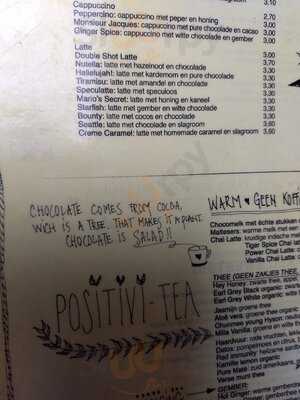 Cappuccino 3,10
Peppercino: cappuccino met peper en honing 2,70
Monsieur Jacques: cappuccino met pure chocolade en cacao 3,00
Ginger Spice: cappuccino met witte chocolade en gember 3,00
Latte
Double Shot Latte 3,00
Nutella: latte met hazelnoot en chocolade 3,70
Hallelujah!: latte met kardemom en pure chocolade 3,30
Tiramisu: latte met amandel en chocolade 3,30
Speculatte: latte met speculoos 3,30
Mario's Secret: latte met honing en kaneel 3,30
Starfish: latte met gember en witte chocolade 3,30
Bounty: latte met cocos en chocolade 3,30
Seattle: latte met chocolade en slagroom 3,60
Creme Caramel: latte met homemade caramel en slagroom 3,60
CHOCOLATE COMES FROM COCOA,
WICH IS A TREE. THAT MAKES IT A PLANT.
CHOCOLATE IS SALAD!!
POSITIVI-TEA
WARM ♥ GEEN KOFF
Chocomelk met échte stukken
Maltesers: warme melk met
Chai Latte: kruidige indische
Tiger Spice Chai
Power Chai Latte:
Vanilla Chai Latte:
THEE (GEEN ZAKJES THEE
Hey Honey: zwarte thee, appel,
Earl Grey Black organic: zwarte
Earl Grey White organic
Jasmijn groene thee
Aloë vera: groene thee organic
Chunmee young Hyson:
Mila Vanilla: groene en witte
Haardvuur: rode vruchten,
Detox: pompelmoes en citrus,
Red immunity: heilzame
Kamille lemon organic
Pure Maté: zuid amerikaans
Verse munt thee
GEMBER:
Hot Ginger: warme gember